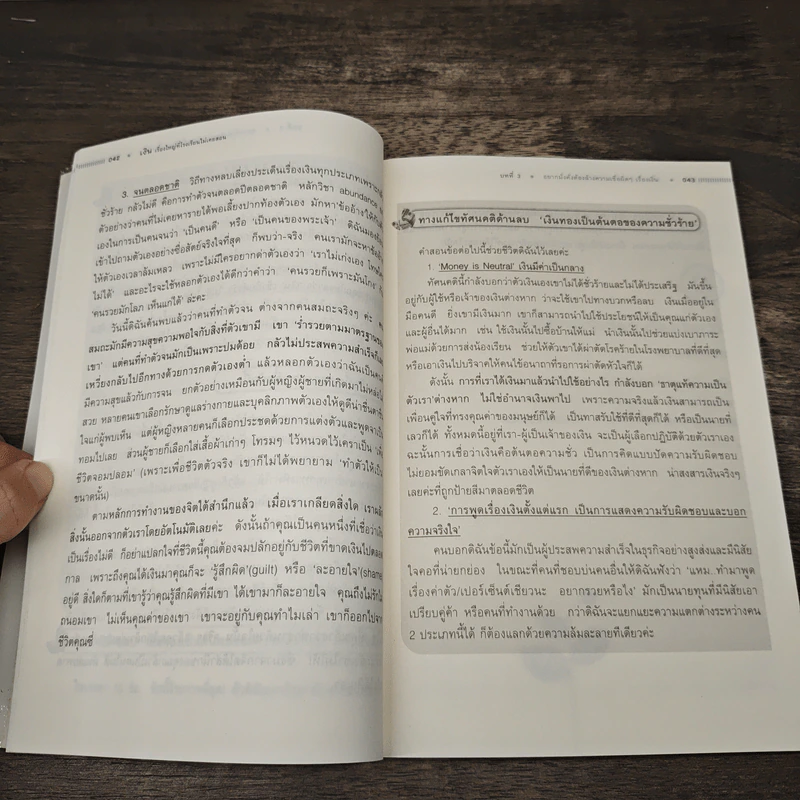 042 เงิน เรื่องใหญ่ที่โรงเรียนไม่เคยสอน
3. จนตลอดชาติ วิธีทางหลบเลี่ยงประเด็นเรื่องเงินทุกประเภทเพราะ
ชั่วร้าย กลัวไม่ดี คือการทำตัวจนตลอดปีตลอดชาติ หลักวิชา abundance
ตัวอย่างว่าคนที่ไม่เคยหารายได้พอเลี้ยงปากท้องตัวเอง มักหาข้ออ้างให้
เองในการเป็นคนจนว่า 'เป็นคนดี' หรือ 'เป็นคนของพระเจ้า' ดิฉัน
เข้าไปถามตัวเองอย่างซื่อสัตย์จริงใจที่สุด ก็พบว่า-จริง คนเรามักจะหา
ให้ตัวเองเวลาล้มเหลว เพราะไม่มีใครอยากด่าตัวเองว่า 'เราไม่เก่งเอง
ไม่ได้' และอะไรจะใช้หลอกตัวเองได้ดีกว่าคำว่า 'คนรวยก็เพราะมันโกง'
'คนรวยมักโลภ เห็นแก่ได้' ล่ะคะ
วันนี้ดิฉันค้นพบแล้วว่าคนที่ทำตัวจน ต่างจากคนสมถะจริงๆ ค่ะ
สมถะมักมีความสุขความพอใจกับสิ่งที่ตัวเขามี เขา 'ร่ำรวยตามมาตรฐาน
เขา' แต่คนที่ทำตัวจนมักเป็นเพราะปมด้อย กลัวไม่ประสบความสำเร็จ
เหวี่ยงกลับไปอีกทางด้วยการกดตัวเองต่ำ แล้วหลอกตัวเองว่าฉันเป็น
มีความสุขแล้วกับการจน ยกตัวอย่างเหมือนกับผู้หญิงผู้ชายที่เกิดมาไม่หล่อ
สวย หลายคนเขาเลือกรักษาดูแลร่างกายและบุคลิกภาพตัวเองให้ดูดีน่าชื่น
ใจแก่ผู้พบเห็น แต่ผู้หญิงหลายคนก็เลือกประชดด้วยการแต่งตัวและพูดจา
ทอมไปเลย ส่วนผู้ชายก็เลือกใส่เสื้อผ้าเก่าๆ โทรมๆ ไว้หนวดไว้เคราเป็น
ชีวิตจอมปลอม' (เพราะเพื่อชีวิตตัวจริง เขาก็ไม่ได้พยายาม 'ทำตัวให้
ขนาดนั้น)
ตามหลักการทำงานของจิตใต้สำนึกแล้ว เมื่อเราเกลียดสิ่งใด
สิ่งนั้นออกจากตัวเราโดยอัตโนมัติเลยค่ะ ดังนั้นถ้าคุณเป็นคนหนึ่งที่เชื่อว่า
เป็นเรื่องไม่ดี ก็อย่าแปลกใจที่ชีวิตนี้คุณต้องจมปลักอยู่กับชีวิตที่ขาดเงินไปตลอด
กาล เพราะถึงคุณได้เงินมาคุณก็จะ 'รู้สึกผิด'(guilt) หรือ 'ละอายใจ'(shame)
อยู่ดี สิ่งใดก็ตามที่เขารู้ว่าคุณรู้สึกผิดที่มีเขา ได้เขามาก็ละอายใจ คุณถึงไม่รัก
ถนอมเขา ไม่เห็นคุณค่าของเขา เขาจะอยู่กับคุณทำไมเล่า เขาก็ออกไปจาก
ชีวิตคุณซี่
บทที่ 3 043
ทางแก้ไขทัศนคติด้านลบ 'เงินทองเป็นต้นตอของความชั่วร้าย'
คำสอนข้อต่อไปนี้ช่วยชีวิตดิฉันไว้เลยค่ะ
1. 'Money is Neutral' เงินมีค่าเป็นกลาง
ทัศนคตินี้กำลังบอกว่าตัวเงินเองเขาไม่ได้ชั่วร้ายและไม่ได้ประเสริฐ มันขึ้น
อยู่กับผู้ใช้หรือเจ้าของเงินต่างหาก ว่าจะใช้เขาไปทางบวกหรือลบ เงินเมื่ออยู่ใน
มือคนดี ยิ่งเขามีเงินมาก เขาก็สามารถนำไปใช้ประโยชน์ให้เป็นคุณแก่ตัวเอง
และผู้อื่นได้มาก เช่น ใช้เงินนั้นไปซื้อบ้านให้แม่ นำเงินนั้นไปช่วยแบ่งเบาภาระ
พ่อแม่ด้วยการส่งน้องเรียน ช่วยให้ตัวเขาได้ผ่าตัดโรคร้ายในโรงพยาบาลที่ดีที่สุด
หรือเอาเงินไปบริจาคให้คนไข้อนาถาที่รอการผ่าตัดหัวใจก็ได้
ดังนั้น การที่เราได้เงินมาแล้วนำไปใช้อย่างไร กำลังบอก 'ธาตุแท้ความเป็น
ตัวเรา'ต่างหาก ไม่ใช่อำนาจเงินพาไป เพราะความจริงแล้วเงินสามารถเป็น
เพื่อนคู่ใจที่ทรงคุณค่าของมนุษย์ก็ได้ เป็นทาสรับใช้ที่ดีที่สุดก็ได้ หรือเป็นนายที่
เลวก็ได้ ทั้งหมดนี้อยู่ที่เรา-ผู้เป็นเจ้าของเงิน จะเป็นผู้เลือกปฏิบัติด้วยตัวเราเอง
ฉะนั้นการเชื่อว่าเงินคือต้นตอความชั่ว เป็นการคิดแบบปัดความรับผิดชอบ
ไม่ยอมขัดเกลาจิตใจตัวเราเองให้เป็นนายที่ดีของเงินต่างหาก น่าสงสารเงินจริงๆ
เลยค่ะที่ถูกป้ายสีมาตลอดชีวิต
2. 'การพูดเรื่องเงินตั้งแต่แรก เป็นการแสดงความรับผิดชอบและบอก
ความจริงใจ'
คนบอกดิฉันข้อนี้มักเป็นผู้ประสบความสำเร็จในธุรกิจอย่างสูงส่งและมีนิสัย
ใจคอที่น่ายกย่อง ในขณะที่คนที่ชอบบ่นคนอื่นให้ดิฉันฟังว่า 'แหม..ทำมาพูด
เรื่องค่าตัว/เปอร์เซ็นต์เชียวนะ อยากรวยหรือไง' มักเป็นนายทุนที่มีนิสัยเอา
เปรียบคู่ค้า หรือคนที่ทำงานด้วย กว่าดิฉันจะแยกแยะความแตกต่างระหว่างคน
2 ประเภทนี้ได้ ก็ต้องแลกด้วยความล้มละลายทีเดียวค่ะ